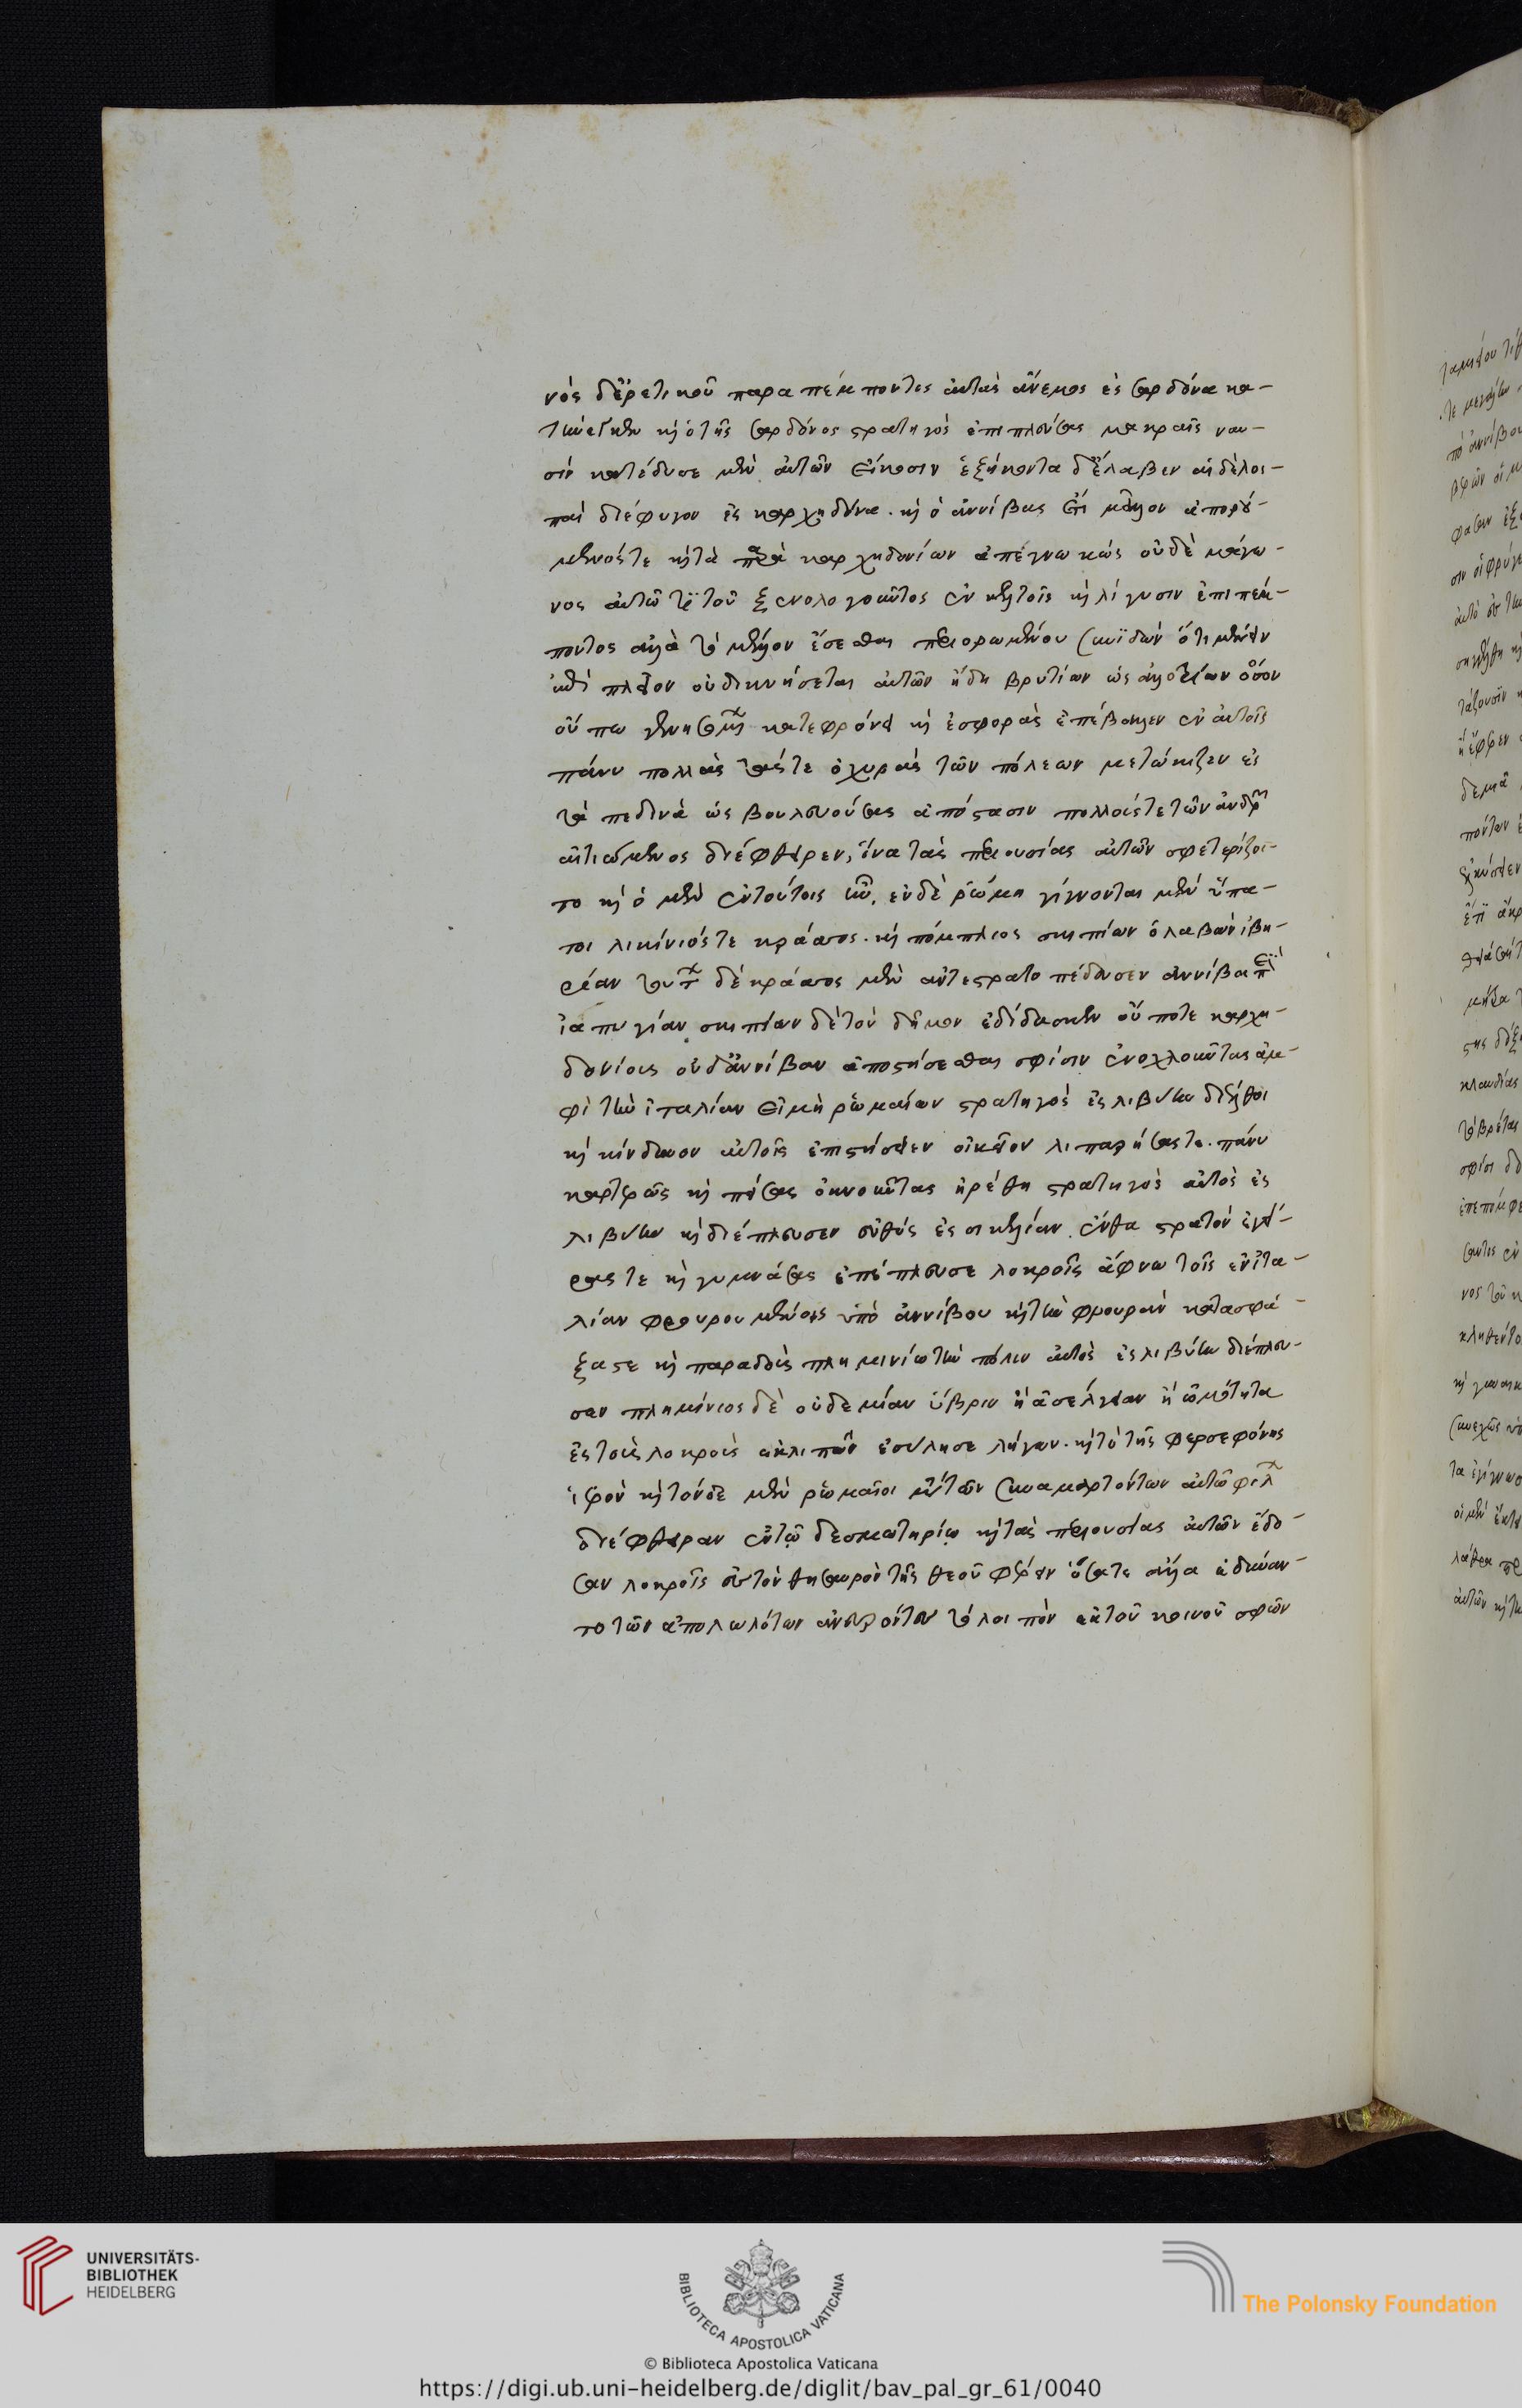 νὸς δ' ἐρετικοῦ παραπέμποντος αὐτὰς ἄνεμος ἐς σαρδόνα κα-
τήνεγκεν καὶ ὁ τῆς σαρδόνος στρατηγὸς ἐπιπλεύσας μακραῖς ναυ-
σὶν κατέδυσε μὲν αὐτῶν εἴκοσιν ἑξήκοντα δ' ἔλαβεν αἱ δὲ λοι-
παὶ διέφυγον ἐς καρχηδόνα. καὶ ὁ ἀννίβας ἔτι μᾶλλον ἀπορού-
μενός τε καὶ τὰ παρὰ καρχηδονίων ἀπεγνωκώς οὐδὲ μάγω-
νος αὐτῶ τι τοῦ ξενολογοῦντος ἐν κελτοῖς καὶ λίγυσιν ἐπιπέμ-
ποντος ἀλλὰ τὸ μέλλον ἔσεσθαι περιορωμένου συνϊδὼν ὅτι μένειν
ἐπὶ πλεῖον οὐ δυνήσεται αὐτῶν ἤδη βρυτίων ὡς ἀλλοτρίων ὅσον
οὔπω γενησομένων κατεφρόνει καὶ ἐσφορὰς ἐπέβαλλεν ἐν αὐτοῖς
πάνυ πολλὰς τάς τε ὀχυρὰς τῶν πόλεων μετώκιζεν ἐς
τὰ πεδινὰ ὡς βουλευούσας ἀπόστασιν πολλούς τε τῶν ἀνδρῶν
αἰτιώμενος διέφθειρεν, ἵνα τὰς περιουσίας αὐτῶν σφετερίζοι-
το καὶ ὁ μὲν ἐν τούτοις ἦν, ἐν δὲ ῥώμη γίγνονται μὲν ὕπα-
τοι λικίνιός τε κράσσος. καὶ πόμπλιος σκιπίων ὁ λαβὼν ἰβη-
ρίαν τούτων δὲ κράσσος μὲν ἀντεστρατοπέδευσεν ἀννίβα περὶ
ἰαπυγίαν σκιπίων δὲ τὸν δῆμον ἐδίδασκεν οὔποτε καρχη-
δονίους οὐδ' ἀννίβαν ἀποστήσεσθαι σφίσιν ἐνοχλοῦντας ἀμ-
φὶ τὴν ἰταλίαν εἰ μὴ ῥωμαίων στρατηγὸς ἐς λιβύην διέλθοι
καὶ κίνδυνον αὐτοῖς ἐπιστήσειεν οἰκεῖον λιπαρήσας τε. πάνυ
καρτερῶς καὶ πείσας ὀκνοῦντας ἡρέθη στρατηγὸς αὐτὸς ἐς
λιβύην καὶ διέπλευσεν εὐθὺς ἐς σικελίαν. ἔνθα στρατὸν ἀγεί-
ρας τε καὶ γυμνάσας ἐπέπλευσε λοκροῖς ἄφνω τοῖς ἐν ἰτα-
λίαν φρουρουμένοις ὑπὸ ἀννίβου καὶ τὴν φρουρὰν κατασφά-
ξας τε καὶ παραδοὺς πλημινίω τὴν πόλιν αὐτὸς ἐς λιβύην διέπλευ-
σεν πλημίνιος δὲ οὐδεμίαν ὕβριν ἢ ἀσέλγειαν ἢ ὠμότητα
ἐς τοὺς λοκροὺς ἐκλιπὼν ἐσύλησε λήγων. καὶ τὸ τῆς φερσεφόνης
ἱερὸν καὶ τόνδε μὲν ῥωμαῖοι μετὰ τῶν συναμαρτόντων αὐτῶ φίλων
διέφθειραν ἐν τῷ δεσμωτηρίῳ καὶ τὰς περιουσίας αὐτῶν ἔδο-
σαν λοκροῖς ἐς τὸν θησαυρὸν τῆς θεοῦ φέρειν ὅσα τε ἄλλα ἐδύναν-
το τῶν ἀπολωλότων ἀνευρόντες τὸ λοιπὸν ἐκ τοῦ κοινοῦ σφῶν
UNIVERSITÄTS-
BIBLIOTHEK
HEIDELBERG
BIBLIOTECA APOSTOLICA VATICANA
The Polonsky Foundation
© Biblioteca Apostolica Vaticana
https://digi.ub.uni-heidelberg.de/diglit/bav_pal_gr_61/0040